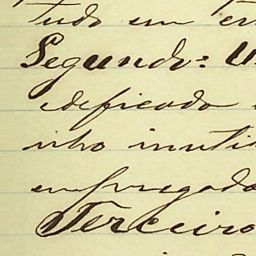 tudo em
Segundo: U
edificado
nho inuti
empregado
Terceiro